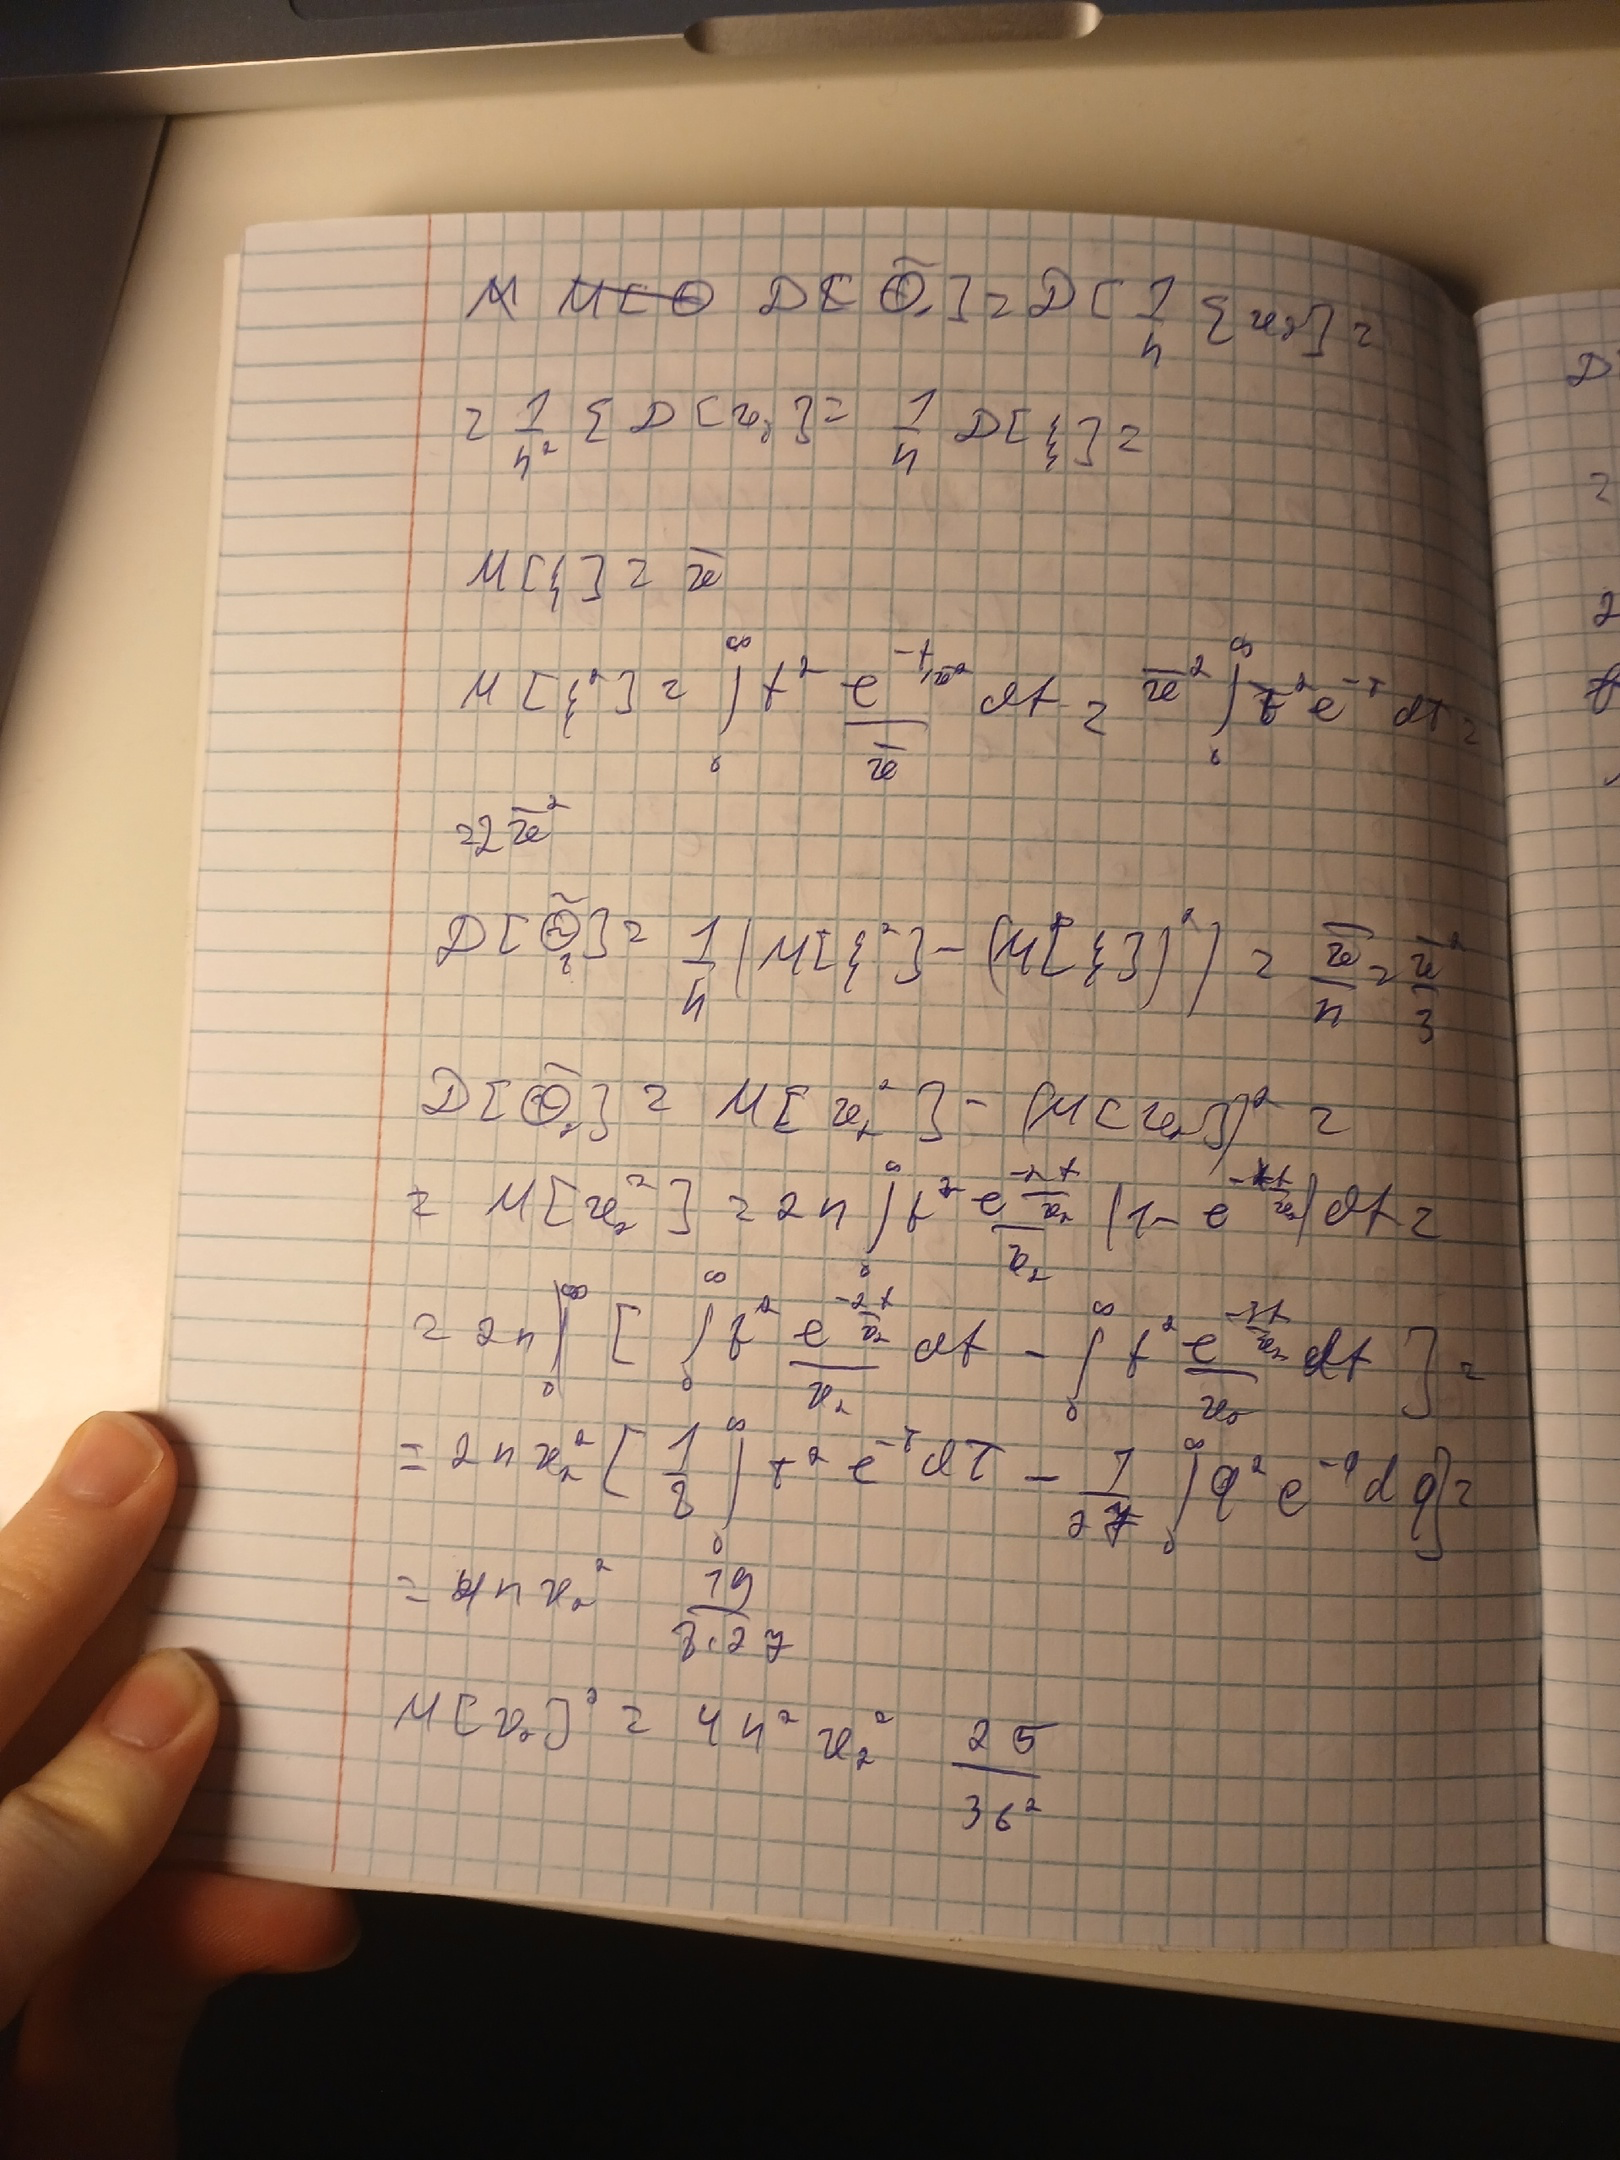 D[Θ̃₁] = D[1/n Σ x₂] =
= 1/n² Σ D[x₂] = 1/n D[ξ] =
M[ξ] = x̄
M[ξ²] = ∫₀^∞ t² e^(-t/x̄²)/x̄ dt = x̄² ∫₀^∞ t² e^(-τ) dτ =
= 2 x̄²
D[Θ̃₁] = 1/n (M[ξ²] - (M[ξ])²) = x̄/n = x̄²/3
D[Θ̃₂] = M[x₂²] - (M[x₂])² =
= M[x₂²] = 2n ∫₀^∞ t² e^(-2t/x₂)/x₂ (1 - e^(-t/x₂)) dt =
= 2n [ ∫₀^∞ t² e^(-2t/x₂)/x₂ dt - ∫₀^∞ t² e^(-3t/x₂)/x₂ dt ] =
= 2n x₂² [ 1/8 ∫₀^∞ τ² e^(-τ) dτ - 1/27 ∫₀^∞ q² e^(-q) dq ] =
= 4n x₂² 19/(8·27)
M[x₂]² = 4n² x₂² 25/36²
D